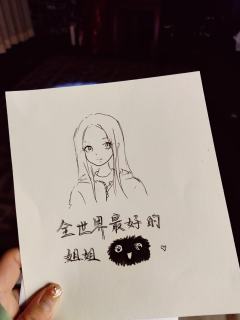 全世界最好的
姐姐